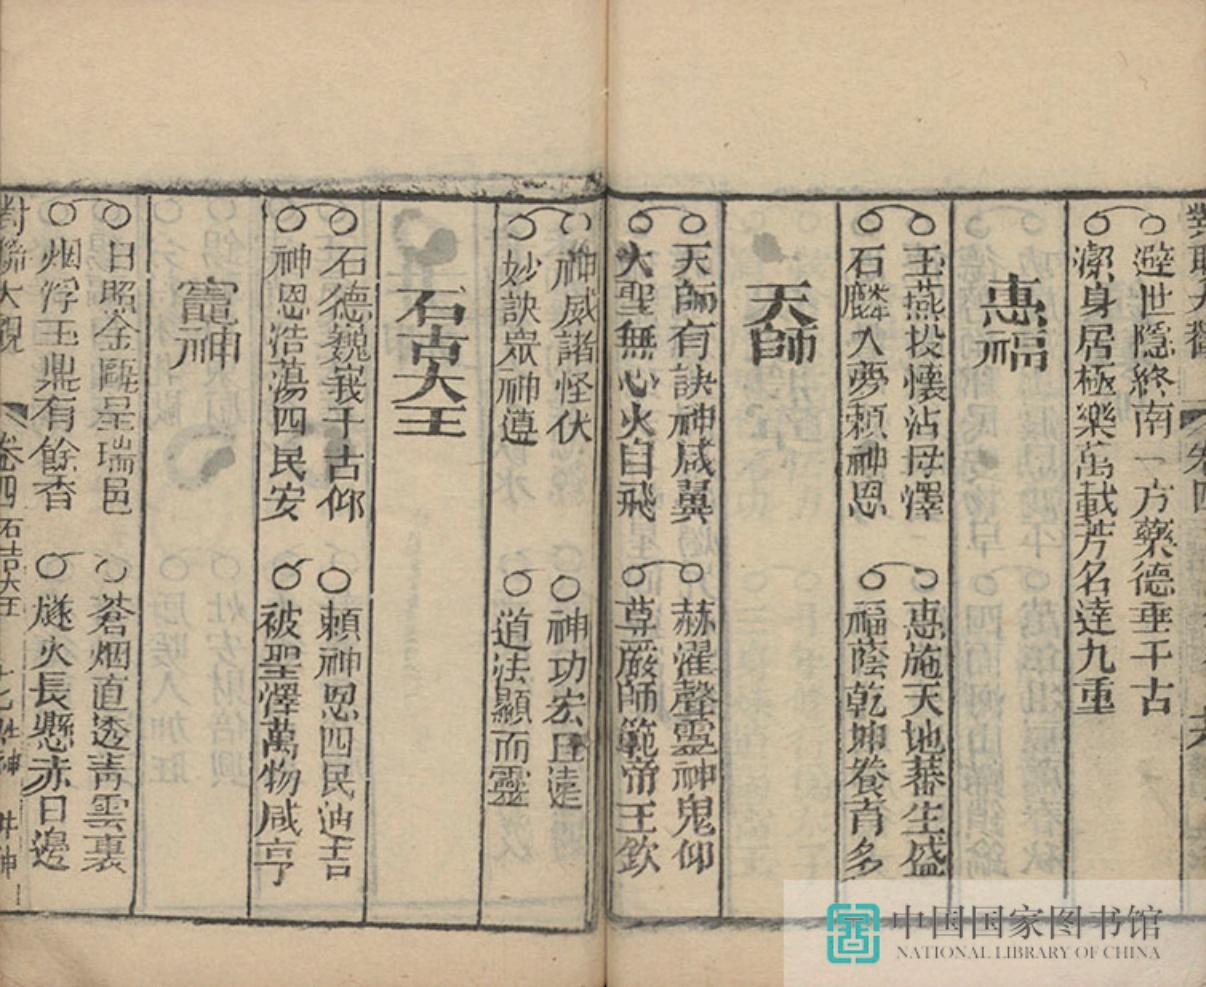 避世隱終南一方藥德垂千古
潔身居極樂萬載芳名達九重
惠福
玉燕投懷沾母澤
石麟入夢賴神恩
惠施天地蕃生盛
福蔭乾坤養育多
天師
天師有訣神咸翼
大聖無心火自飛
赫濯聲靈神鬼仰
尊嚴師範帝王欽
神威諸怪伏
妙訣眾神遵
神功宏且遠
道法顯而靈
石古大王
石德巍峩千古仰
神恩浩蕩四民安
賴神恩四民迪吉
被聖澤萬物咸亨
竈神
日照金甌呈瑞邑
烟浮玉鼎有餘香
蒼烟直透靑雲裏
燧火長懸赤日邊
對聯大觀 卷四 石古大王 十七 竈神 井神
中国国家图书馆
NATIONAL LIBRARY OF CHINA